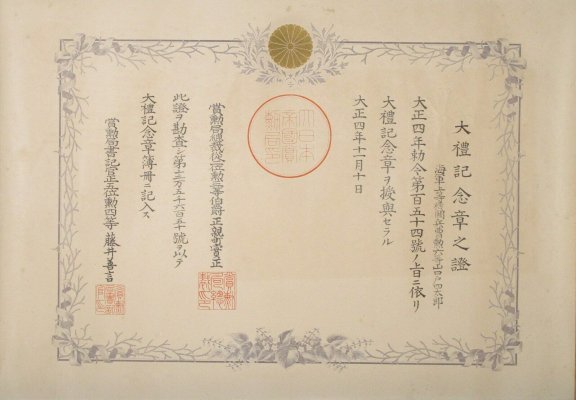 大禮記念章之證
海軍一等機關兵曹勲六等山田四太郎
大正四年勅令第百五十四號ノ旨ニ依リ
大禮記念章ヲ授與セラル
大正四年十一月十日
大日本
帝國賞
勲局印
賞勲局總裁從二位勲二等伯爵正親町實正
此證ヲ勘査シ第十二万五千六百五十號ヲ以テ
大禮記念章簿冊ニ記入ス
賞勲局書記官正五位勲四等藤井善言